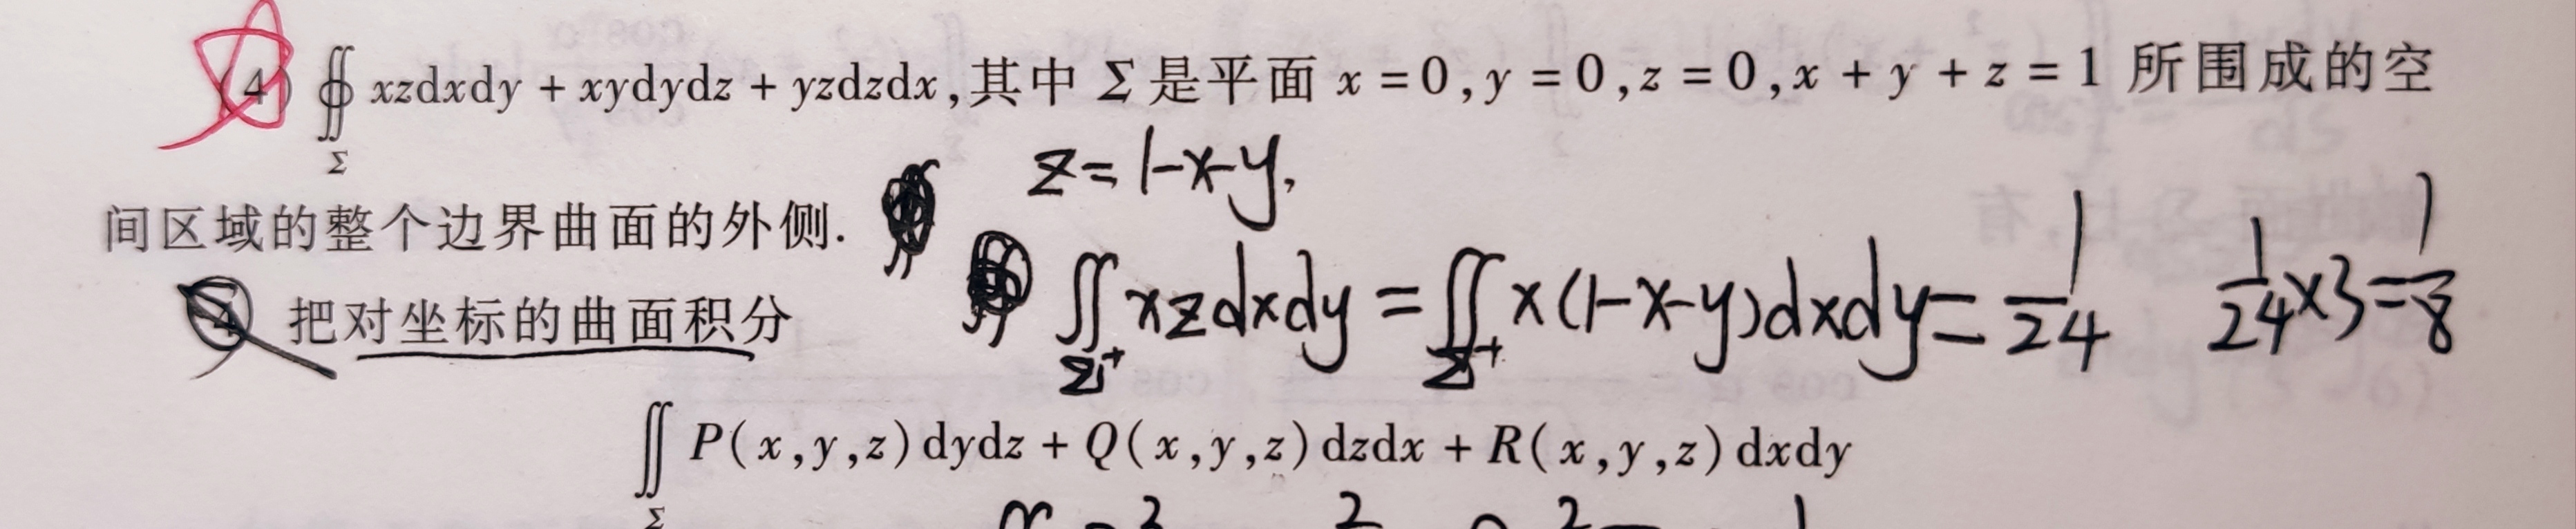 (4) ∯_Σ xzdxdy + xydydz + yzdzdx,其中 Σ 是平面 x = 0,y = 0,z = 0,x + y + z = 1 所围成的空
z = 1-x-y,
间区域的整个边界曲面的外侧.
∬_Σ⁺ xzdxdy = ∬_Σ⁺ x(1-x-y)dxdy = 1/24    1/24×3=1/8
把对坐标的曲面积分
∬_Σ P(x,y,z)dydz + Q(x,y,z)dzdx + R(x,y,z)dxdy